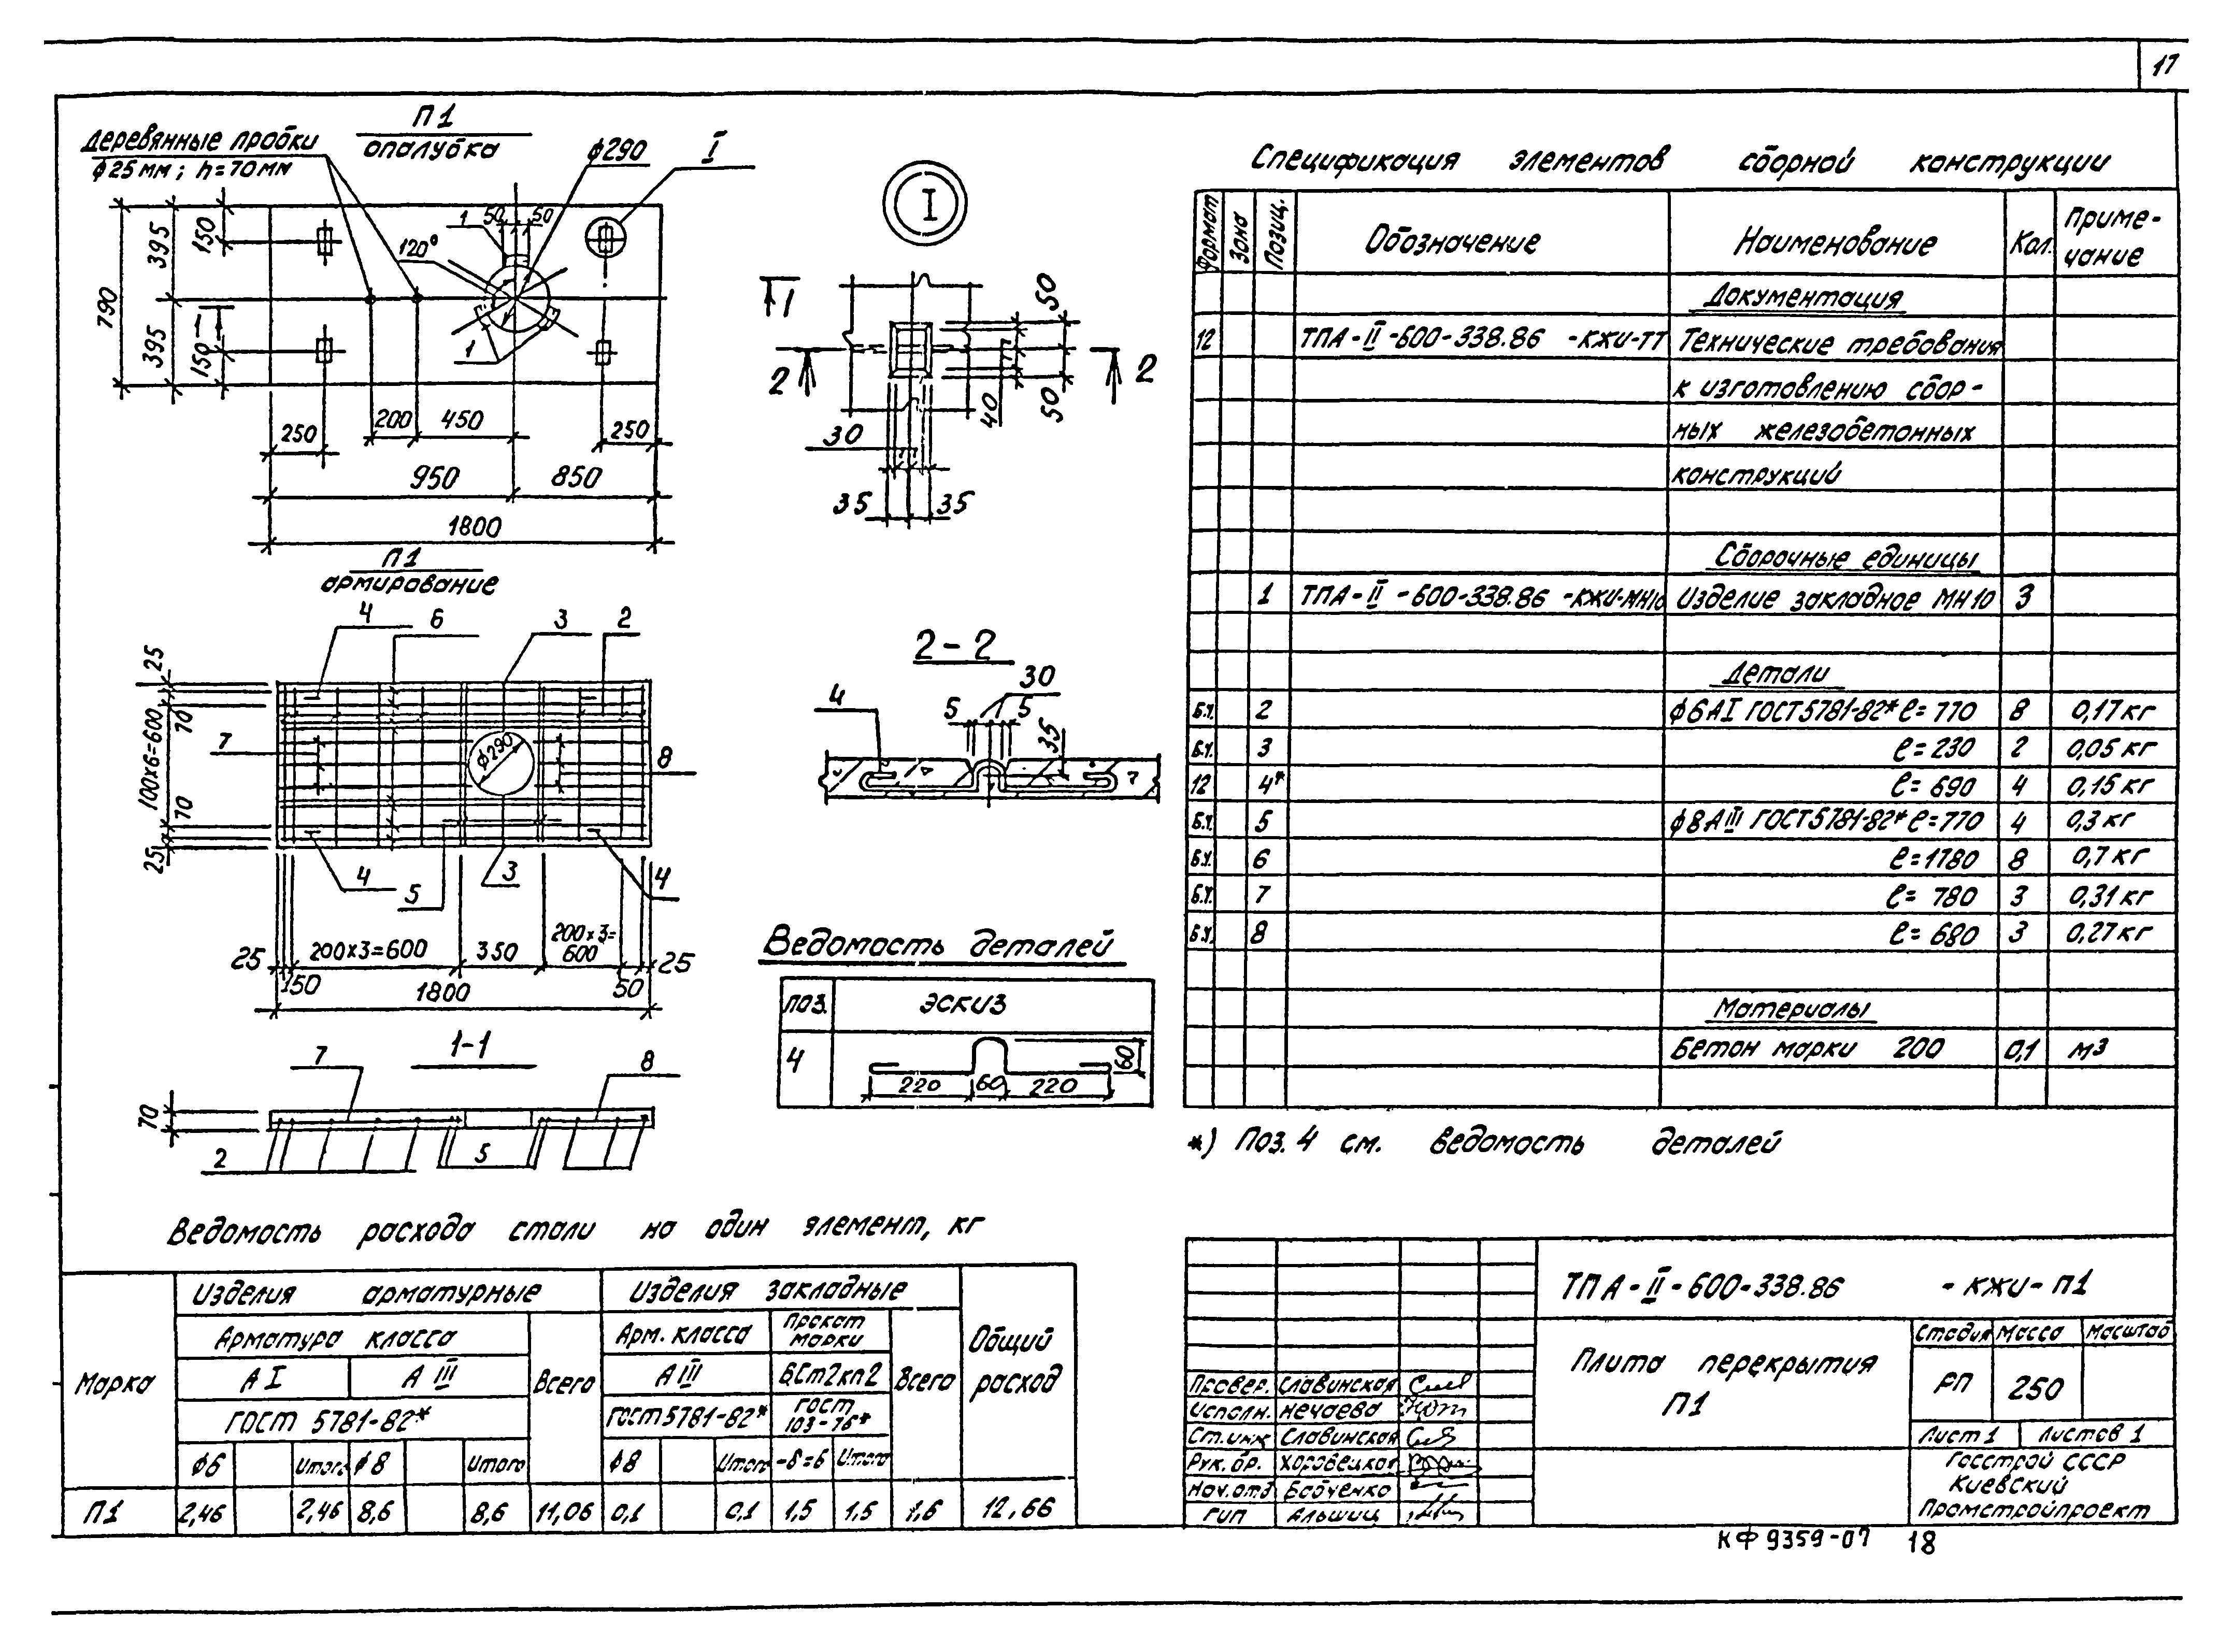 17
П1
опалубка
Деревянные пробки
ф25мм; h=70мм
ф290
I
1
50
50
120°
790
395
395
150
150
1
1
250
200
450
250
950
850
1800
I
1
2
2
50
50
40
30
35
35
П1
армирование
4
6
3
2
25
100х6=600
70
70
25
7
ф290
8
4
5
3
4
25
200х3=600
350
200х3=
600
25
150
1800
50
2-2
30
4
5
5
35
1-1
7
8
70
2
5
Ведомость деталей
поз. эскиз
4
220 60 220
60
Спецификация элементов сборной конструкции
Формат Зона Позиц. Обозначение Наименование Кол. Приме-
чание
Документация
12 ТПА-II-600-338.86 -КЖИ-ТТ Технические требования
к изготовлению сбор-
ных железобетонных
конструкций
Сборочные единицы
1 ТПА-II-600-338.86 -КЖИ-МН10 Изделие закладное МН10 3
Детали
Б.Ч. 2 ф6АI ГОСТ5781-82* ℓ=770 8 0,17кг
Б.Ч. 3 ℓ=230 2 0,05 кг
12 4* ℓ=690 4 0,15кг
Б.Ч. 5 ф8АIII ГОСТ5781-82* ℓ=770 4 0,3кг
Б.Ч. 6 ℓ=1780 8 0,7кг
Б.Ч. 7 ℓ=780 3 0,31кг
Б.Ч. 8 ℓ=680 3 0,27кг
Материалы
Бетон марки 200 0,1 м3
*) Поз.4 см. ведомость деталей
Ведомость расхода стали на один элемент, кг
Марка Изделия арматурные Изделия закладные Общий
расход
Арматура класса Всего Арм. класса Прокат
марки Всего
АI АIII АIII БСт2кп2
ГОСТ 5781-82* ГОСТ5781-82* ГОСТ
103-76*
ф6 Итого ф8 Итого ф8 Итого -δ=6 Итого
П1 2,46 2,46 8,6 8,6 11,06 0,1 0,1 1,5 1,5 1,6 12,66
ТПА-II-600-338.86 -КЖИ-П1
Плита перекрытия
П1
Стадия Масса Масштаб
РП 250
Лист 1 Листов 1
Госстрой СССР
Киевский
Промстройпроект
Провер. Славинская
Исполн. Нечаева
Ст.инж Славинская
Рук. бр. Хоровецкая
Нач.отд Бабченко
ГИП Альшиц
КФ9359-07 18